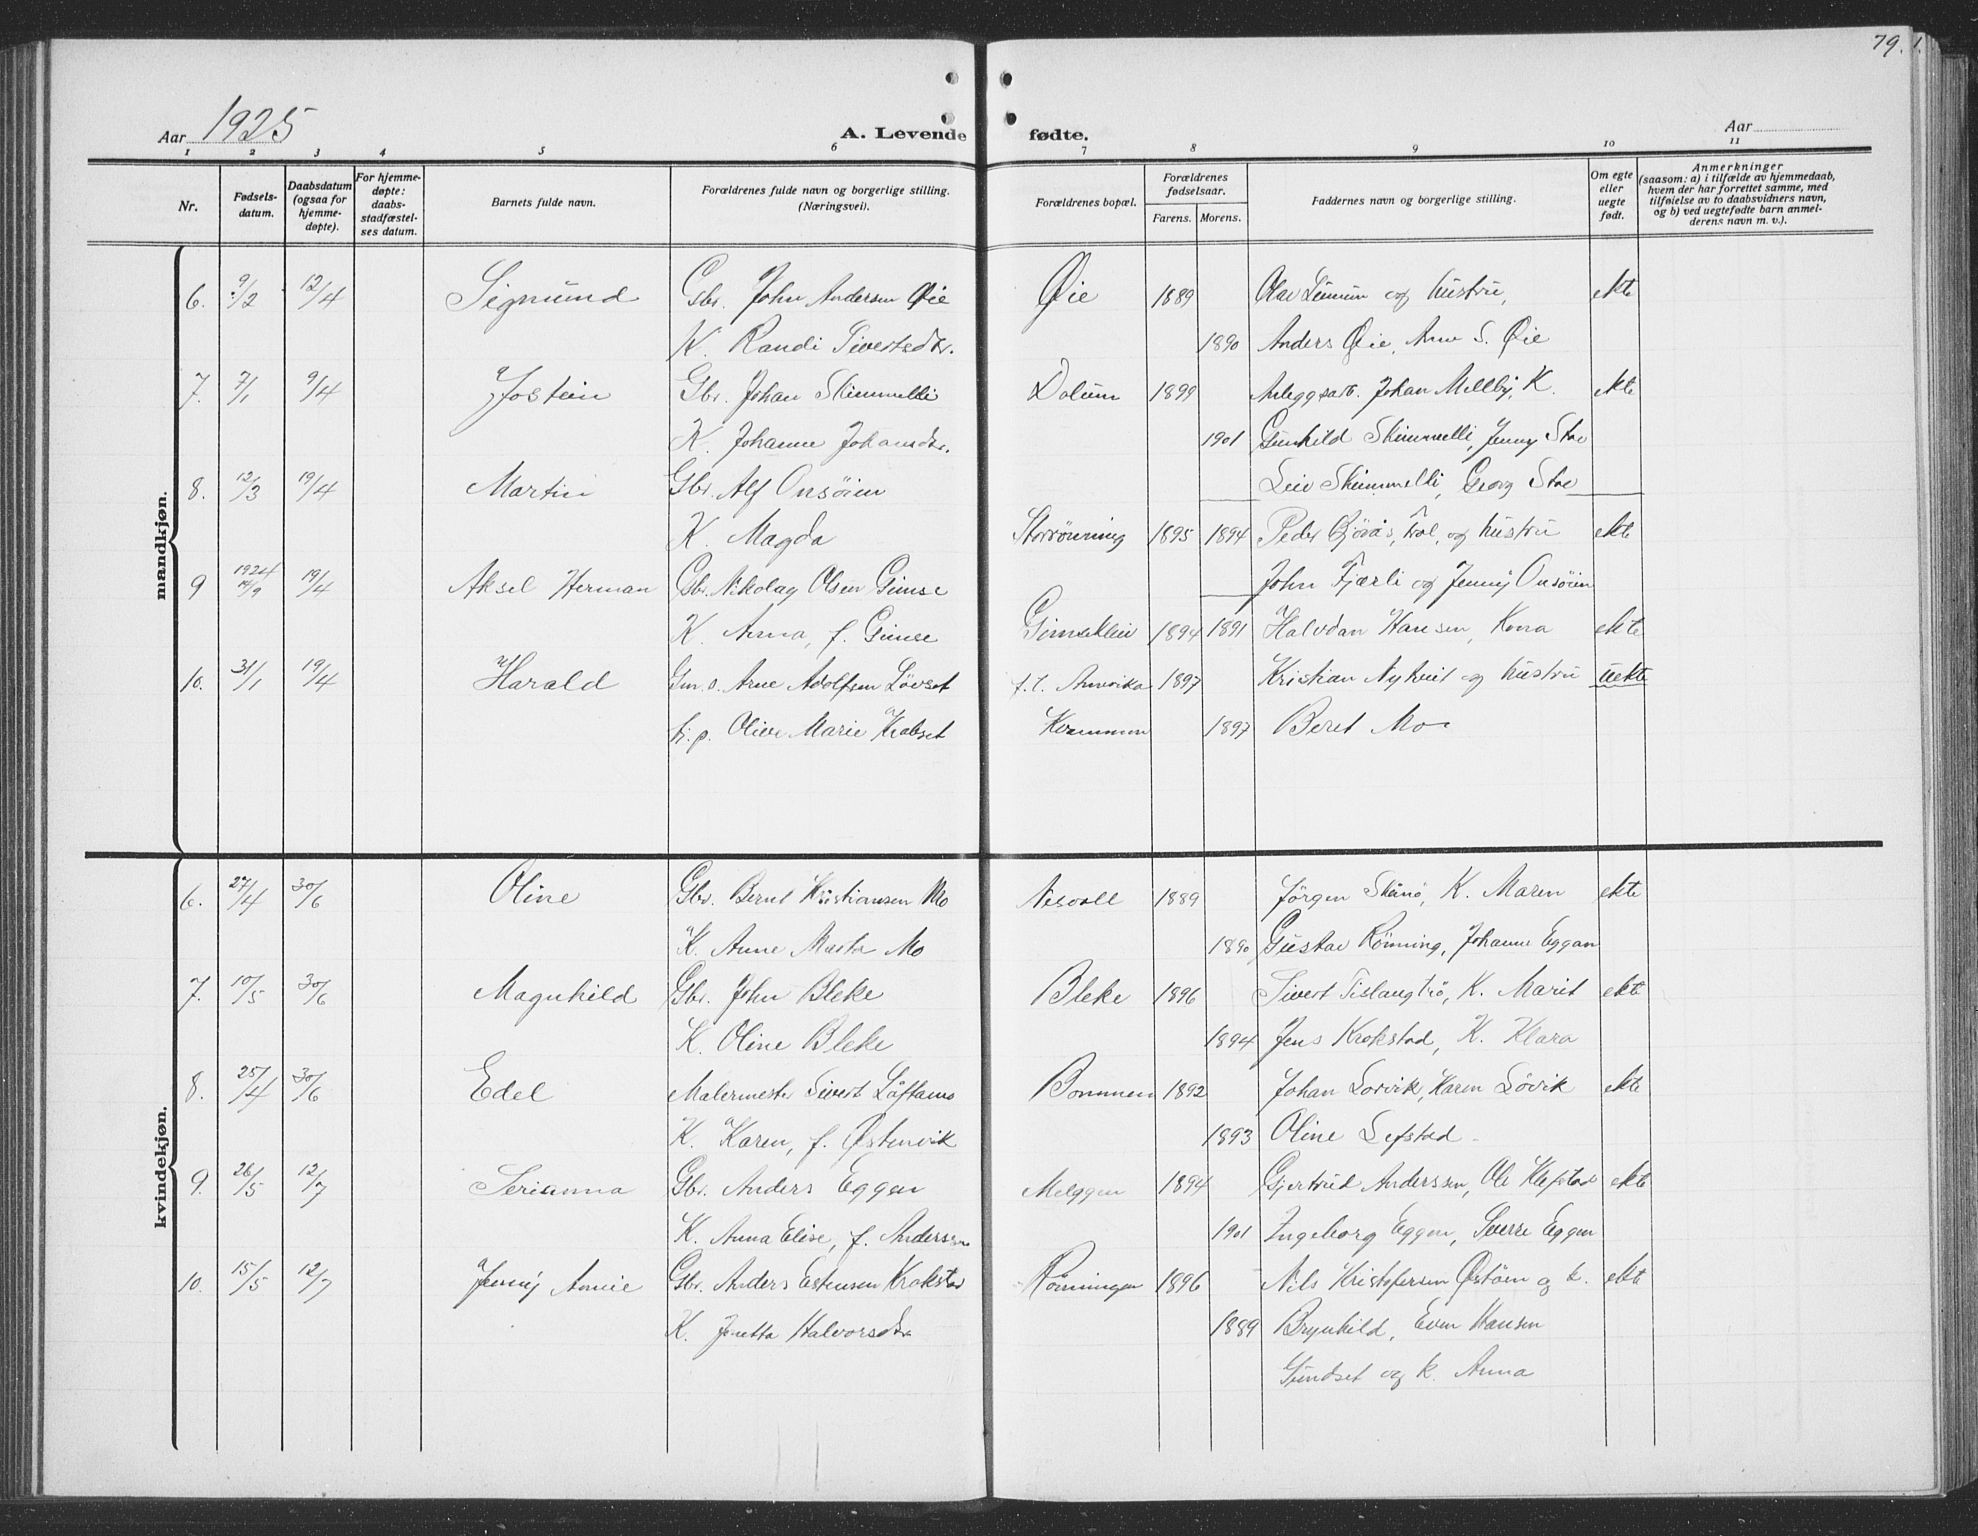 79.
Aar 1925
A. Levende fødte.
Aar
1 2 3 4 5 6 7 8 9 10 11
Nr. Fødsels-datum. Daabsdatum (ogsaa for hjemme-døpte). For hjemme-døpte: daabs-stadfæstel-ses datum. Barnets fulde navn. Forældrenes fulde navn og borgerlige stilling. (Næringsvei). Forældrenes bopæl. Forældrenes fødselsaar. Farens. Morens. Faddernes navn og borgerlige stilling. Om egte eller uegte født. Anmerkninger (saasom: a) i tilfælde av hjemmedaab, hvem der har forrettet samme, med tilføielse av to daabsvidners navn, og b) ved uegtefødte barn anmel-derens navn m. v.).
mandkjøn.
6. 9/2 12/4 Sigmund Gbr. John Andersen Øie Øie 1889 Olav og hustru, ekte
K. Randi Sivertsdtr. 1890 Anders Øie, Ane S. Øie
7. 7/1 9/4 Jostein Gbr. Johan Skimmelli Dolum 1899 Anleggsarb. Johan Mellby, K. ekte
K. Johanne Johansdtr. 1901 Gunhild Skimmelli, Jenny Stoe
8. 12/3 19/4 Martin Gbr. Alf Onsöien Leiv Skimmelli, Georg Stoe
K. Magda Storrönning 1895 1894 Peder og hustru ekte
9 1924 14/9 19/4 Aksel Herman Gbr. Nikolay Olsen Gimse John Fjærli og Jenny Onsöien
K. Anna, f. Gimse 1894 1891 Halvdan Hansen, Kona ekte
10. 31/1 19/4 Harald Gm.o. Arne Adolfsen Lövset f.t. Amerika 1897 Kristian Nyhus og hustru uekte
p. Olive Marie Krabset Kvammen 1897 Beret Mo
kvindekjøn.
6. 27/4 30/6 Oline Gbr. Bernt Kristiansen Mo Nesvoll 1889 Jörgen K. Maren ekte
K. Anne Marta Mo 1890 Gustav Rönning, Johanne Eggan
7. 10/5 30/6 Magnhild Gbr. John Bleke Bleke 1896 Sivert K. Marit ekte
K. Oline Bleke 1894 Jens Krokstad, K. Klara
8. 25/4 30/6 Edel Malermester Sivert Löftamo Bommen 1892 Johan Lorvik, Karen Lövik ekte
K. Karen, f. Østenvik 1893 Oline Lefstad
9. 26/5 12/7 Serianna Gbr. Anders Eggen Melggen 1894 Gjertrud Anderssen, Ole Klefstad ekte
K. Anna Elise, f. Anderssen 1901 Ingeborg Eggen, Sverre Eggen
10. 15/5 12/7 Jenny Annie Gbr. Anders Estensen Krokstad Rönningen 1896 Nils Kristofersen Østöien og k. ekte
K. Jonetta Halvorsdtr 1889 Brynhild, Even Hansen
Gundset og k. Anna